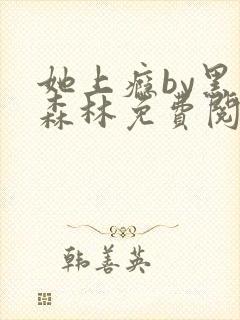 她上瘾by黑
森林免費閱
韩善英